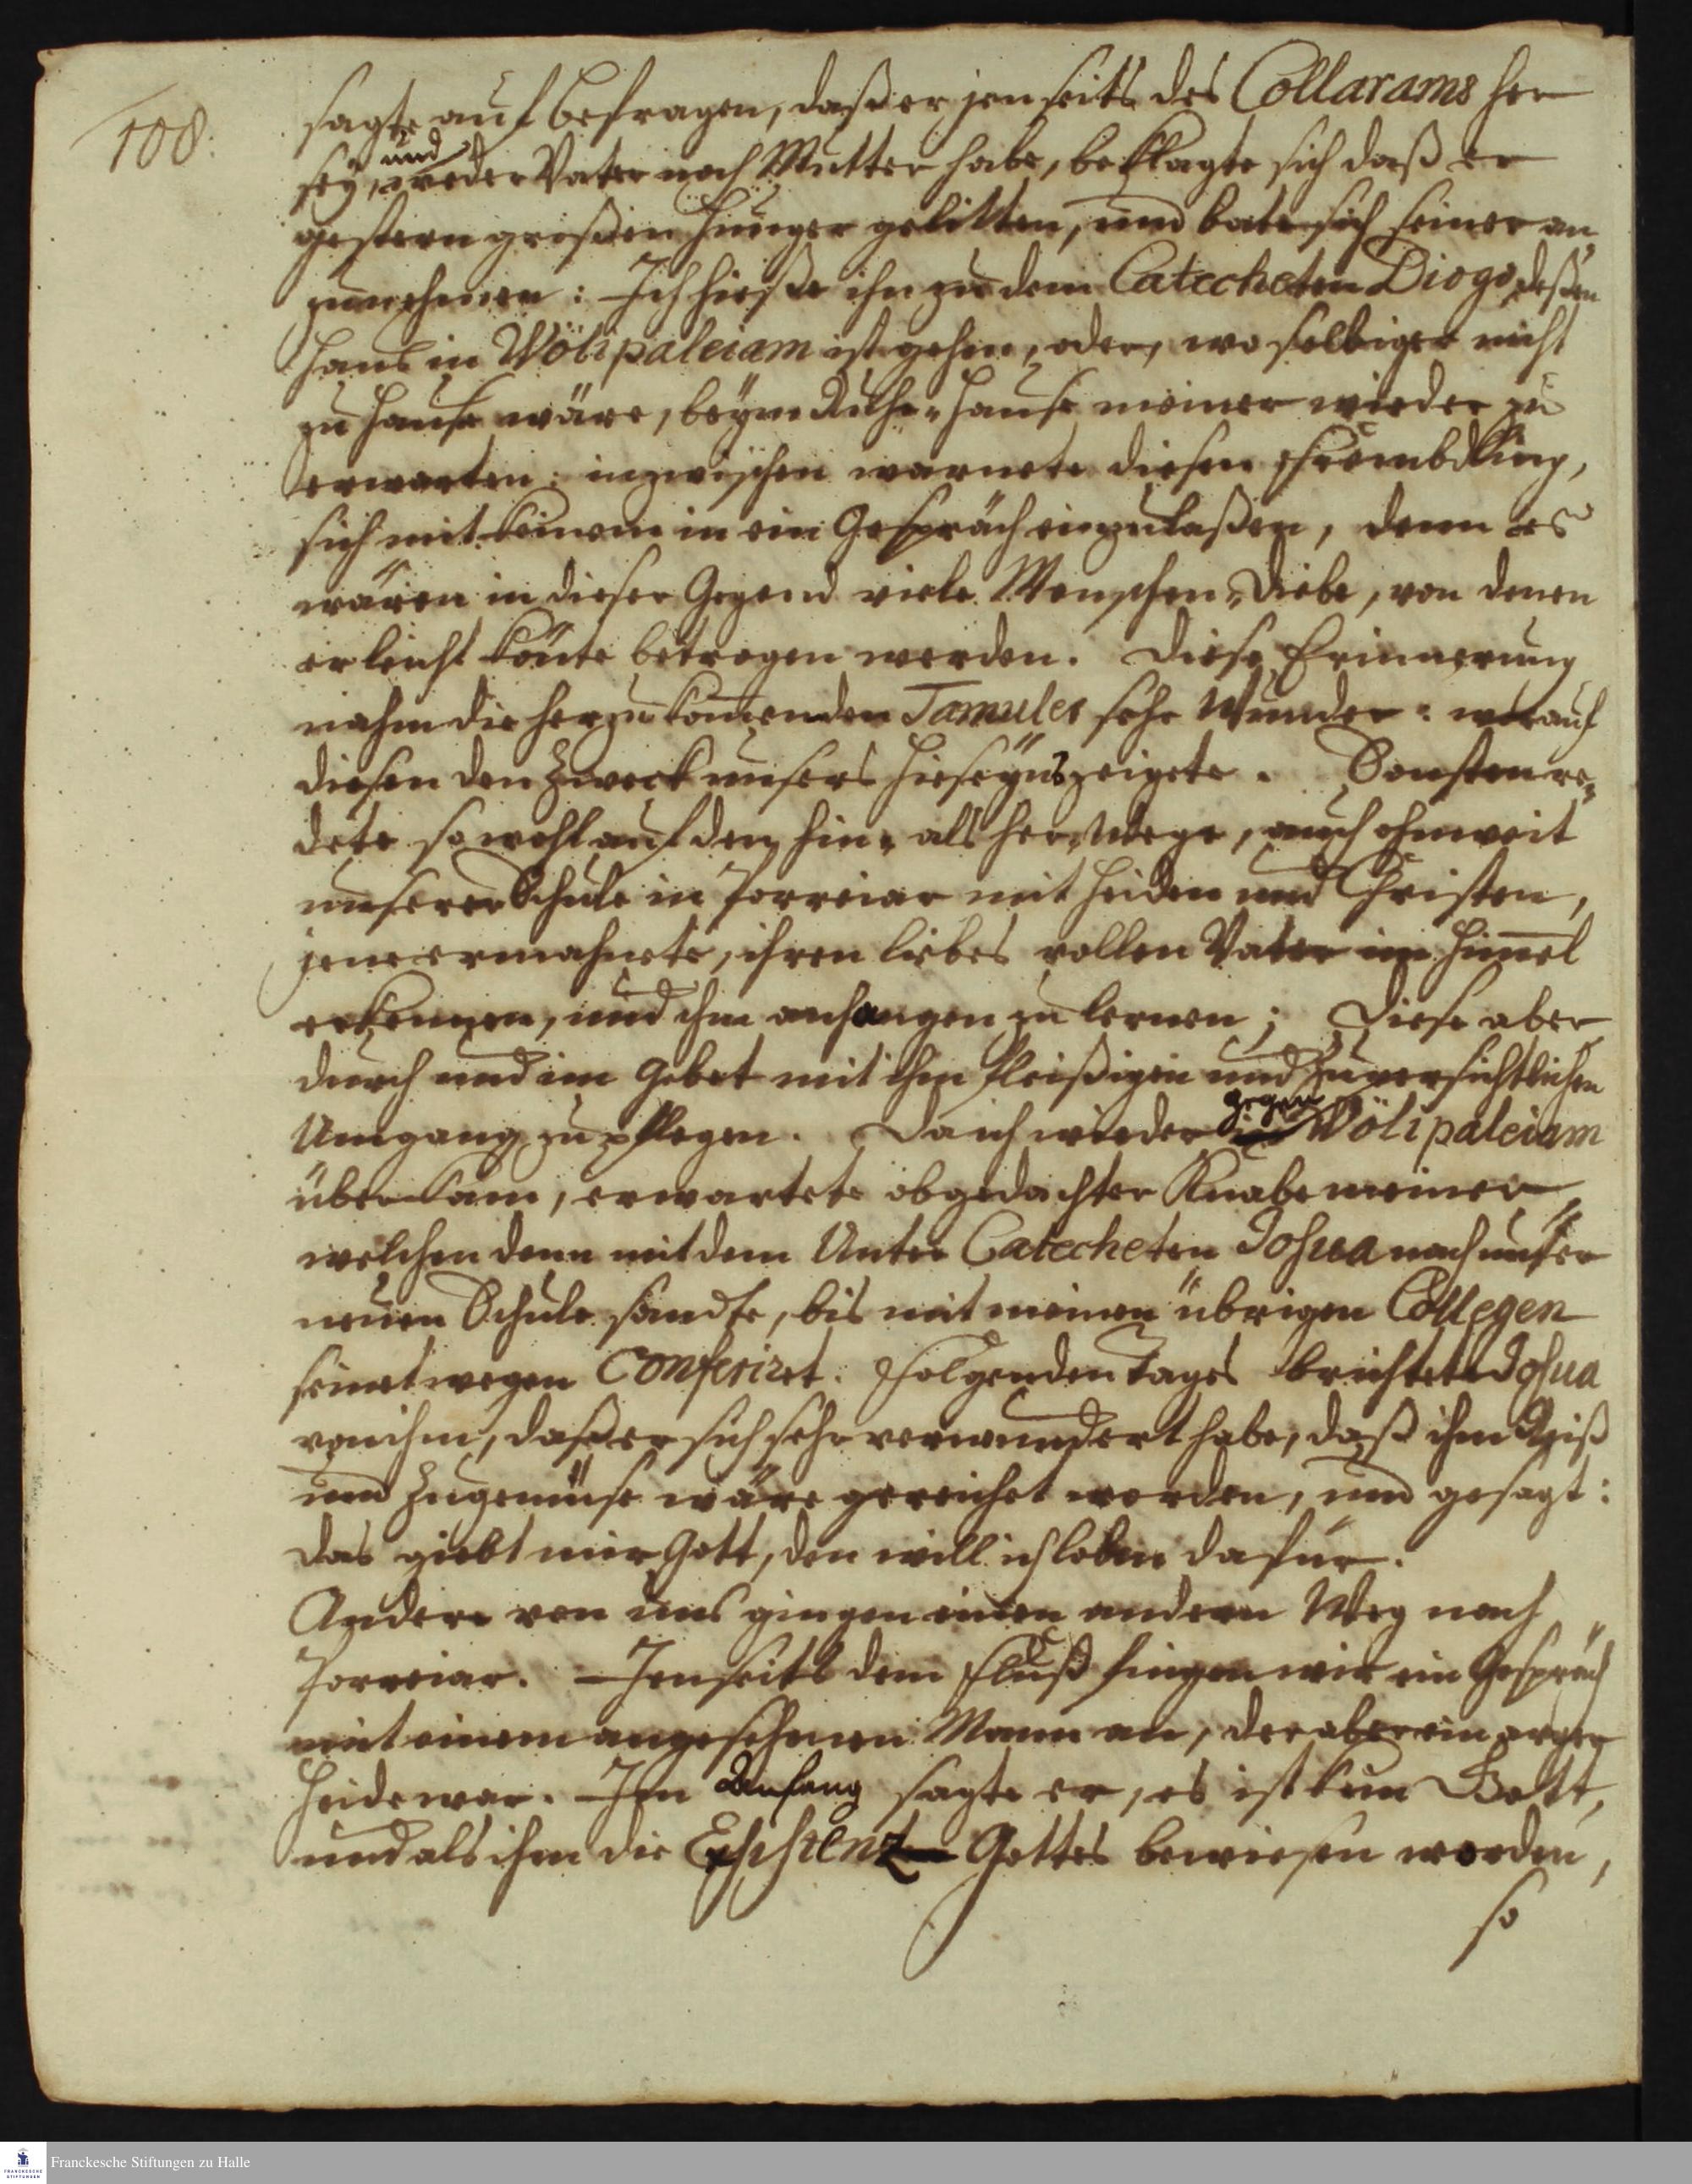 108.
sagte auf befragen, daß er jenseits des Collarams her
und
seÿ, weder Vater noch Mutter habe, beklagte sich daß er
gestern großen Hunger gelitten, und bate sich seiner an,
zunehmen: Ich hieße ihn zu dem Catecheten Diogo deßen
Haus in Wölipaleiam ist gehen, oder, wo selbiger nicht
zu Hause wäre, beÿm Ruhe-Hause meiner wieder zu
erwarten: inzwischen warnete diesen Frembdling,
sich mit keinem in ein Gespräch einzulaßen, denn es
wären in dieser Gegend viele Menschen-Diebe, von denen
er leicht könte betrogen werden. Diese Erinnerung
nahm die herzukom̄enden Tamules sehr Wunder: worauf
diesen den Zweck unsers Hierseÿns zeigete. Sonsten re-
dete sowohl auf dem hin- als her-Wege, auch ohnweit
unserer Schule in Porreiar mit Heiden und Christen,
jene ermahnete, ihren liebes vollen Vater im Him̄el
erkennen, und ihm anhangen zu lernen; Diese aber
durch und im Gebet mit ihm fleißigen und Zuversichtlichen
gegen
Umgang zu pflegen. Da ich wieder Wölipaleiam
über kam, erwartete obgedachter Knabe meiner,
welchen denn mit dem Unter Catecheten Josua nach unser
neuen Schule sandte, bis mit meinen übrigen Collegen
seinetwegen Conferiret. Folgenden Tages brichtete Josua
von ihm, daß er sich sehr verwundert habe, daß ihm Reiß
und Zugemüse wäre gereichet worden, und gesagt:
das giebt mir Gott, den will ich loben dafür.
Andere von uns gingen einen andern Weg nach
Porreiar. Jenseits dem Fluß fingen wir ein Gespräch
mit einem angesehenen Mann an, der aber ein arger
Heide war. Im Anfang sagte er, es ist kein Gott,
und als ihm die Existentz Gottes bewiesen worden,
so
Franckesche Stiftungen zu Halle
FRANCKESCHE
STIFTUNGEN